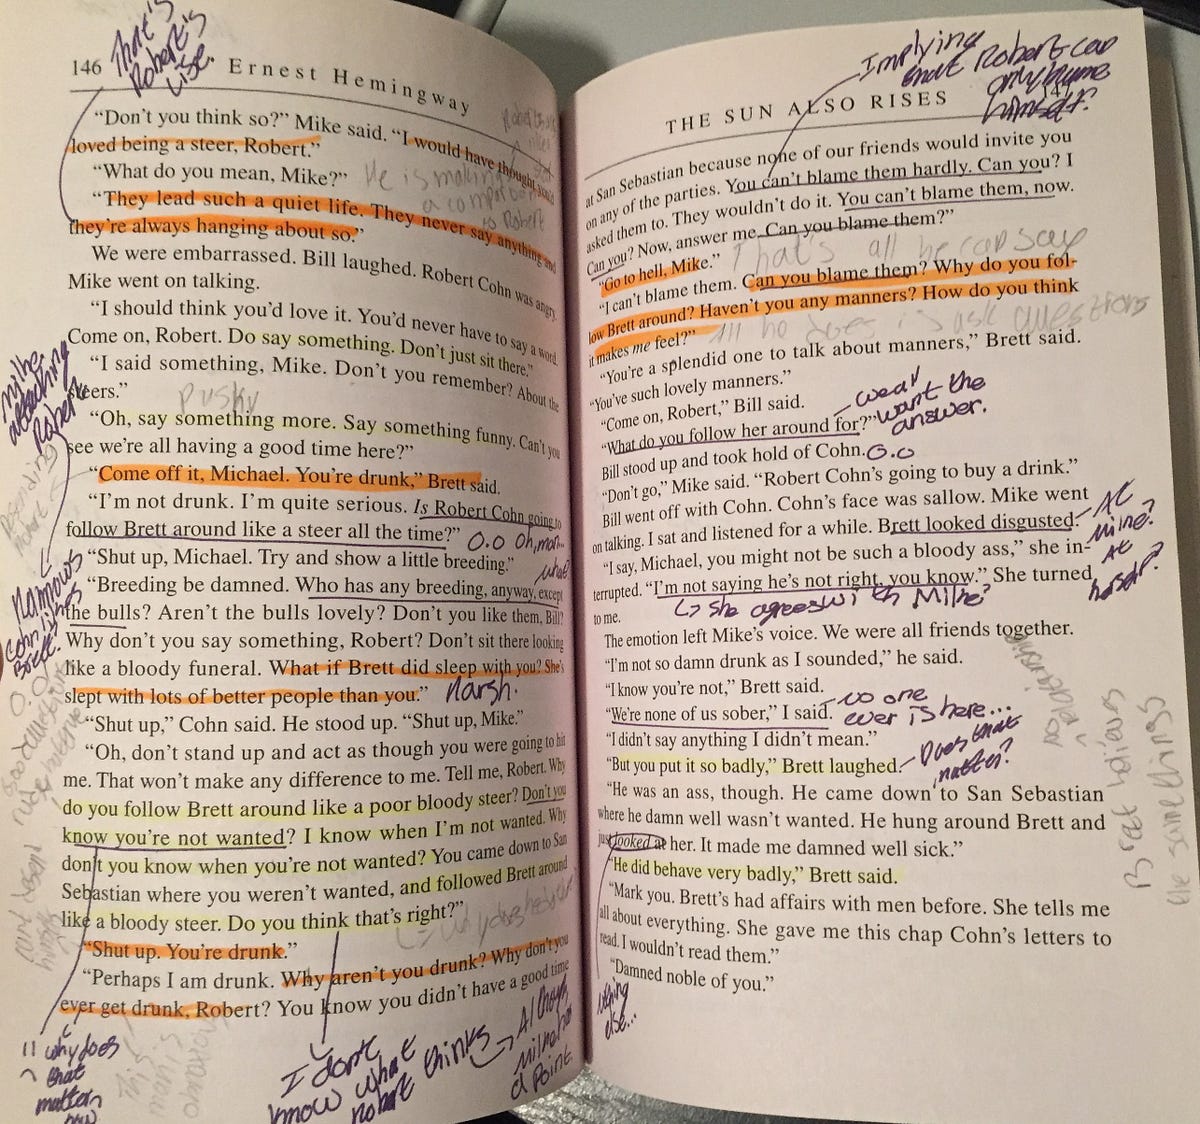 That's
Robert's
146
Ernest Hemingway
"Don't you think so?" Mike said. "I would have thought
loved being a steer, Robert."
"What do you mean, Mike?"
He is making
a comparison
to Robert
"They lead such a quiet life. They never say anything and
they're always hanging about so."
We were embarrassed. Bill laughed. Robert Cohn was angry.
Mike went on talking.
"I should think you'd love it. You'd never have to say a word.
Come on, Robert. Do say something. Don't just sit there."
"I said something, Mike. Don't you remember? About the
steers."
Pushy
Mike
attacking
Robert
"Oh, say something more. Say something funny. Can't you
see we're all having a good time here?"
"Come off it, Michael. You're drunk," Brett said.
"I'm not drunk. I'm quite serious. Is Robert Cohn going to
follow Brett around like a steer all the time?"
O.O Oh, man...
"Shut up, Michael. Try and show a little breeding."
what
"Breeding be damned. Who has any breeding, anyway, except
the bulls? Aren't the bulls lovely? Don't you like them, Bill?
Why don't you say something, Robert? Don't sit there looking
like a bloody funeral. What if Brett did sleep with you? She's
slept with lots of better people than you."
Harsh.
Brett.
"Shut up," Cohn said. He stood up. "Shut up, Mike."
"Oh, don't stand up and act as though you were going to hit
me. That won't make any difference to me. Tell me, Robert. Why
do you follow Brett around like a poor bloody steer? Don't you
know you're not wanted? I know when I'm not wanted. Why
don't you know when you're not wanted? You came down to San
Sebastian where you weren't wanted, and followed Brett around
like a bloody steer. Do you think that's right?"
"Shut up. You're drunk."
"Perhaps I am drunk. Why aren't you drunk? Why don't you
ever get drunk, Robert? You know you didn't have a good time
why does
that
matter
now
I don't
know what
Robert thinks
Although
Mike has
a point
Implying
that Robert can
only blame
himself?
THE SUN ALSO RISES
at San Sebastian because none of our friends would invite you
on any of the parties. You can't blame them hardly. Can you? I
asked them to. They wouldn't do it. You can't blame them, now.
Can you? Now, answer me. Can you blame them?"
"Go to hell, Mike."
That's all he can say
"I can't blame them. Can you blame them? Why do you fol-
low Brett around? Haven't you any manners? How do you think
it makes me feel?"
All he does is ask questions
"You're a splendid one to talk about manners," Brett said.
"You've such lovely manners."
"Come on, Robert," Bill said.
"What do you follow her around for?"
we all
want the
answer.
Bill stood up and took hold of Cohn.
O.O
"Don't go," Mike said. "Robert Cohn's going to buy a drink."
Bill went off with Cohn. Cohn's face was sallow. Mike went
on talking. I sat and listened for a while. Brett looked disgusted.
At
Mike?
At
herself?
"I say, Michael, you might not be such a bloody ass," she in-
terrupted. "I'm not saying he's not right, you know." She turned
to me.
She agrees with Mike?
The emotion left Mike's voice. We were all friends together.
"I'm not so damn drunk as I sounded," he said.
"I know you're not," Brett said.
"We're none of us sober," I said.
no one
ever is here...
"I didn't say anything I didn't mean."
"But you put it so badly," Brett laughed.
Does that
matter?
"He was an ass, though. He came down to San Sebastian
where he damn well wasn't wanted. He hung around Brett and
just looked at her. It made me damned well sick."
"He did behave very badly," Brett said.
"Mark you. Brett's had affairs with men before. She tells me
all about everything. She gave me this chap Cohn's letters to
read. I wouldn't read them."
"Damned noble of you."
else...